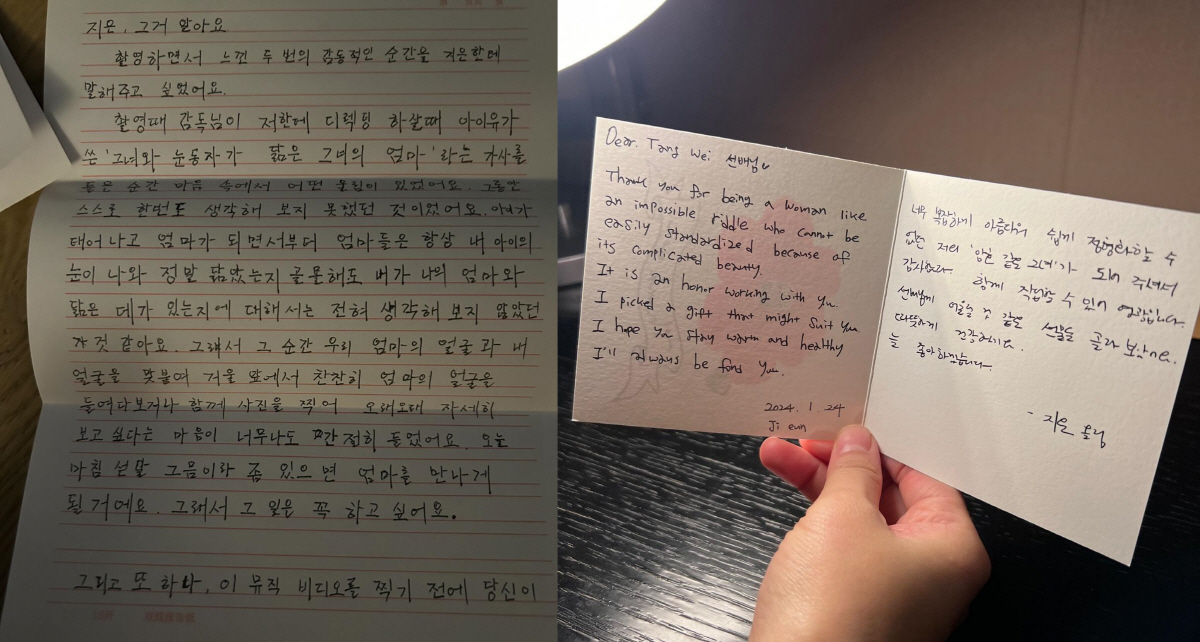 지은, 그거 알아요
촬영하면서 느낀 두 번의 감동적인 순간을 지은한테
말해주고 싶었어요.
촬영때 감독님이 저한테 디렉팅 하실때 아이유가
쓴 '그녀와 눈동자가 닮은 그녀의 엄마'라는 가사를
들은 순간 마음 속에서 어떤 울림이 있었어요. 그동안
스스로 한번도 생각해 보지 못했던 것이었어요. 아이가
태어나고 엄마가 되면서부터 엄마들은 항상 내 아이의
눈이 나와 정말 닮았는지 골몰해도 내가 나의 엄마와
닮은 데가 있는지에 대해서는 전혀 생각해 보지 않았던
것 같아요. 그래서 그 순간 우리 엄마의 얼굴과 내
얼굴을 맞붙여 거울 앞에서 찬찬히 엄마의 얼굴을
들여다보거나 함께 사진을 찍어 오래오래 자세히
보고 싶다는 마음이 너무나도 간절히 들었어요. 오늘
마침 섣달 그믐이라 좀 있으면 엄마를 만나게
될 거예요. 그래서 그 일은 꼭 하고 싶어요.
그리고 또 하나, 이 뮤직 비디오를 찍기 전에 당신이
Dear. Tang Wei 선배님
Thank you for being a woman like
an impossible riddle who cannot be
easily standardized because of
its complicated beauty.
It is an honor working with you
I picked a gift that might suit you
I hope you stay warm and healthy
I'll always be fond you.
2024. 1. 24
Ji eun
너무 복잡하게 아름다워 쉽게 정형화할 수
없는 저의 '암호 같은 그녀'가 되어 주셔서
감사합니다. 함께 작업할 수 있어 영광입니다.
선배님께 어울릴 것 같은 선물을 골라 보았네요.
따뜻하게 건강하세요.
늘 좋아하겠습니다.
- 지은 올림